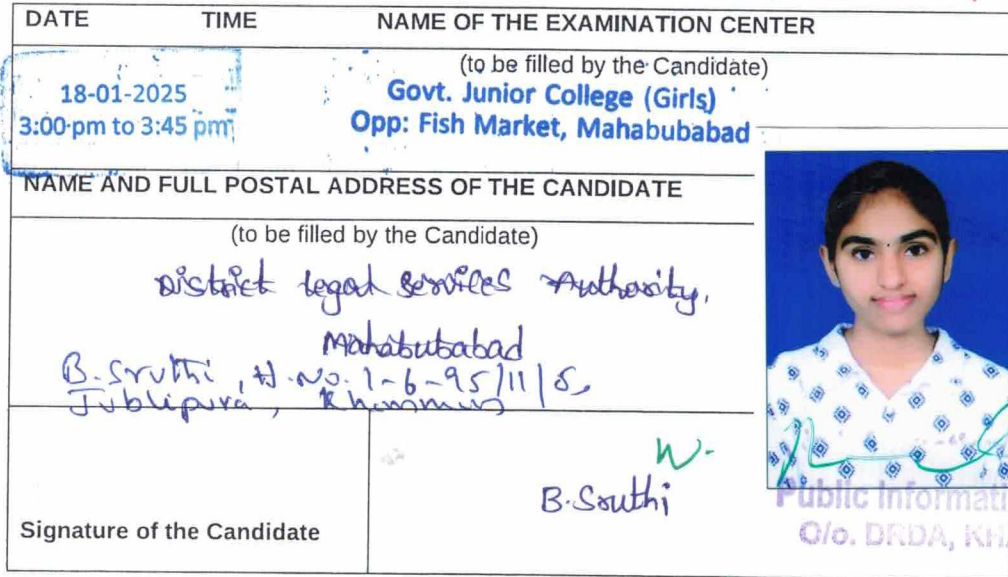 DATE TIME NAME OF THE EXAMINATION CENTER
(to be filled by the Candidate)
18-01-2025
3:00 pm to 3:45 pm
Govt. Junior College (Girls)
Opp: Fish Market, Mahabubabad
NAME AND FULL POSTAL ADDRESS OF THE CANDIDATE
(to be filled by the Candidate)
District Legal Services Authority,
Mahabubabad
B. Sruthi, H.No. 1-6-95/11/
Jublipura, Khammam
W.
B. Sruthi
Signature of the Candidate
Public Informati
O/o. DRDA, KHA